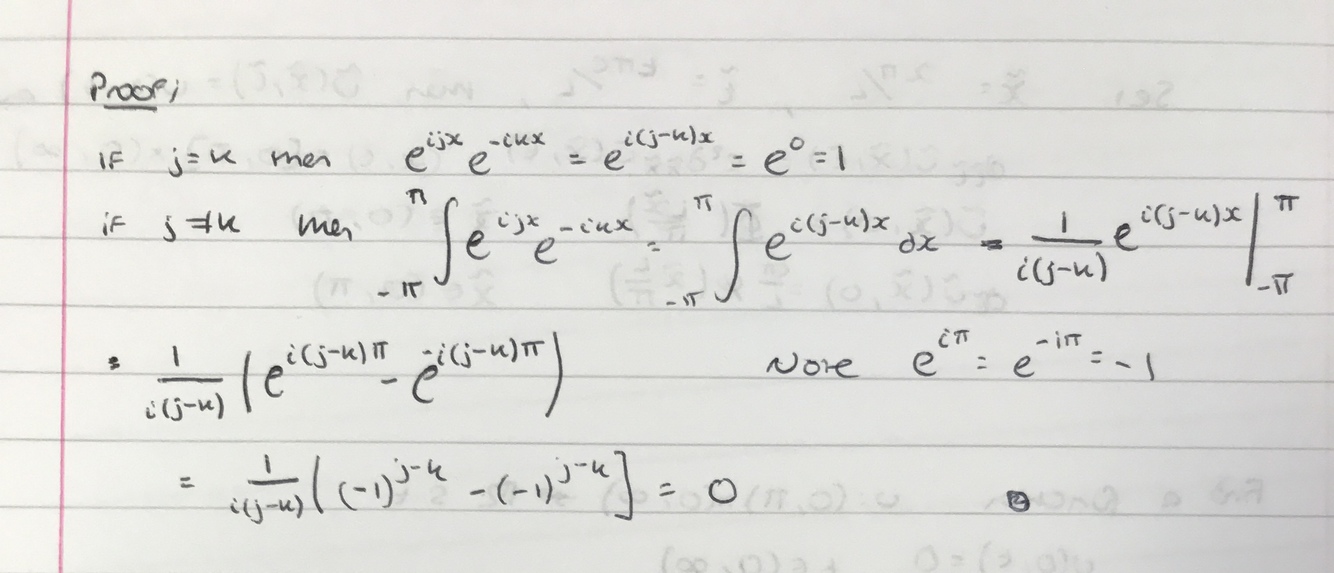 Proof;
if j=k then e^{ijx} e^{-ikx} = e^{i(j-k)x} = e^0 = 1
if j≠k then ∫_{-π}^{π} e^{ijx} e^{-ikx} = ∫_{-π}^{π} e^{i(j-k)x} dx = 1/(i(j-k)) e^{i(j-k)x} |_{-π}^{π}
= 1/(i(j-k)) (e^{i(j-k)π} - e^{-i(j-k)π}) Note e^{iπ} = e^{-iπ} = -1
= 1/(i(j-k)) [(-1)^{j-k} - (-1)^{j-k}] = 0